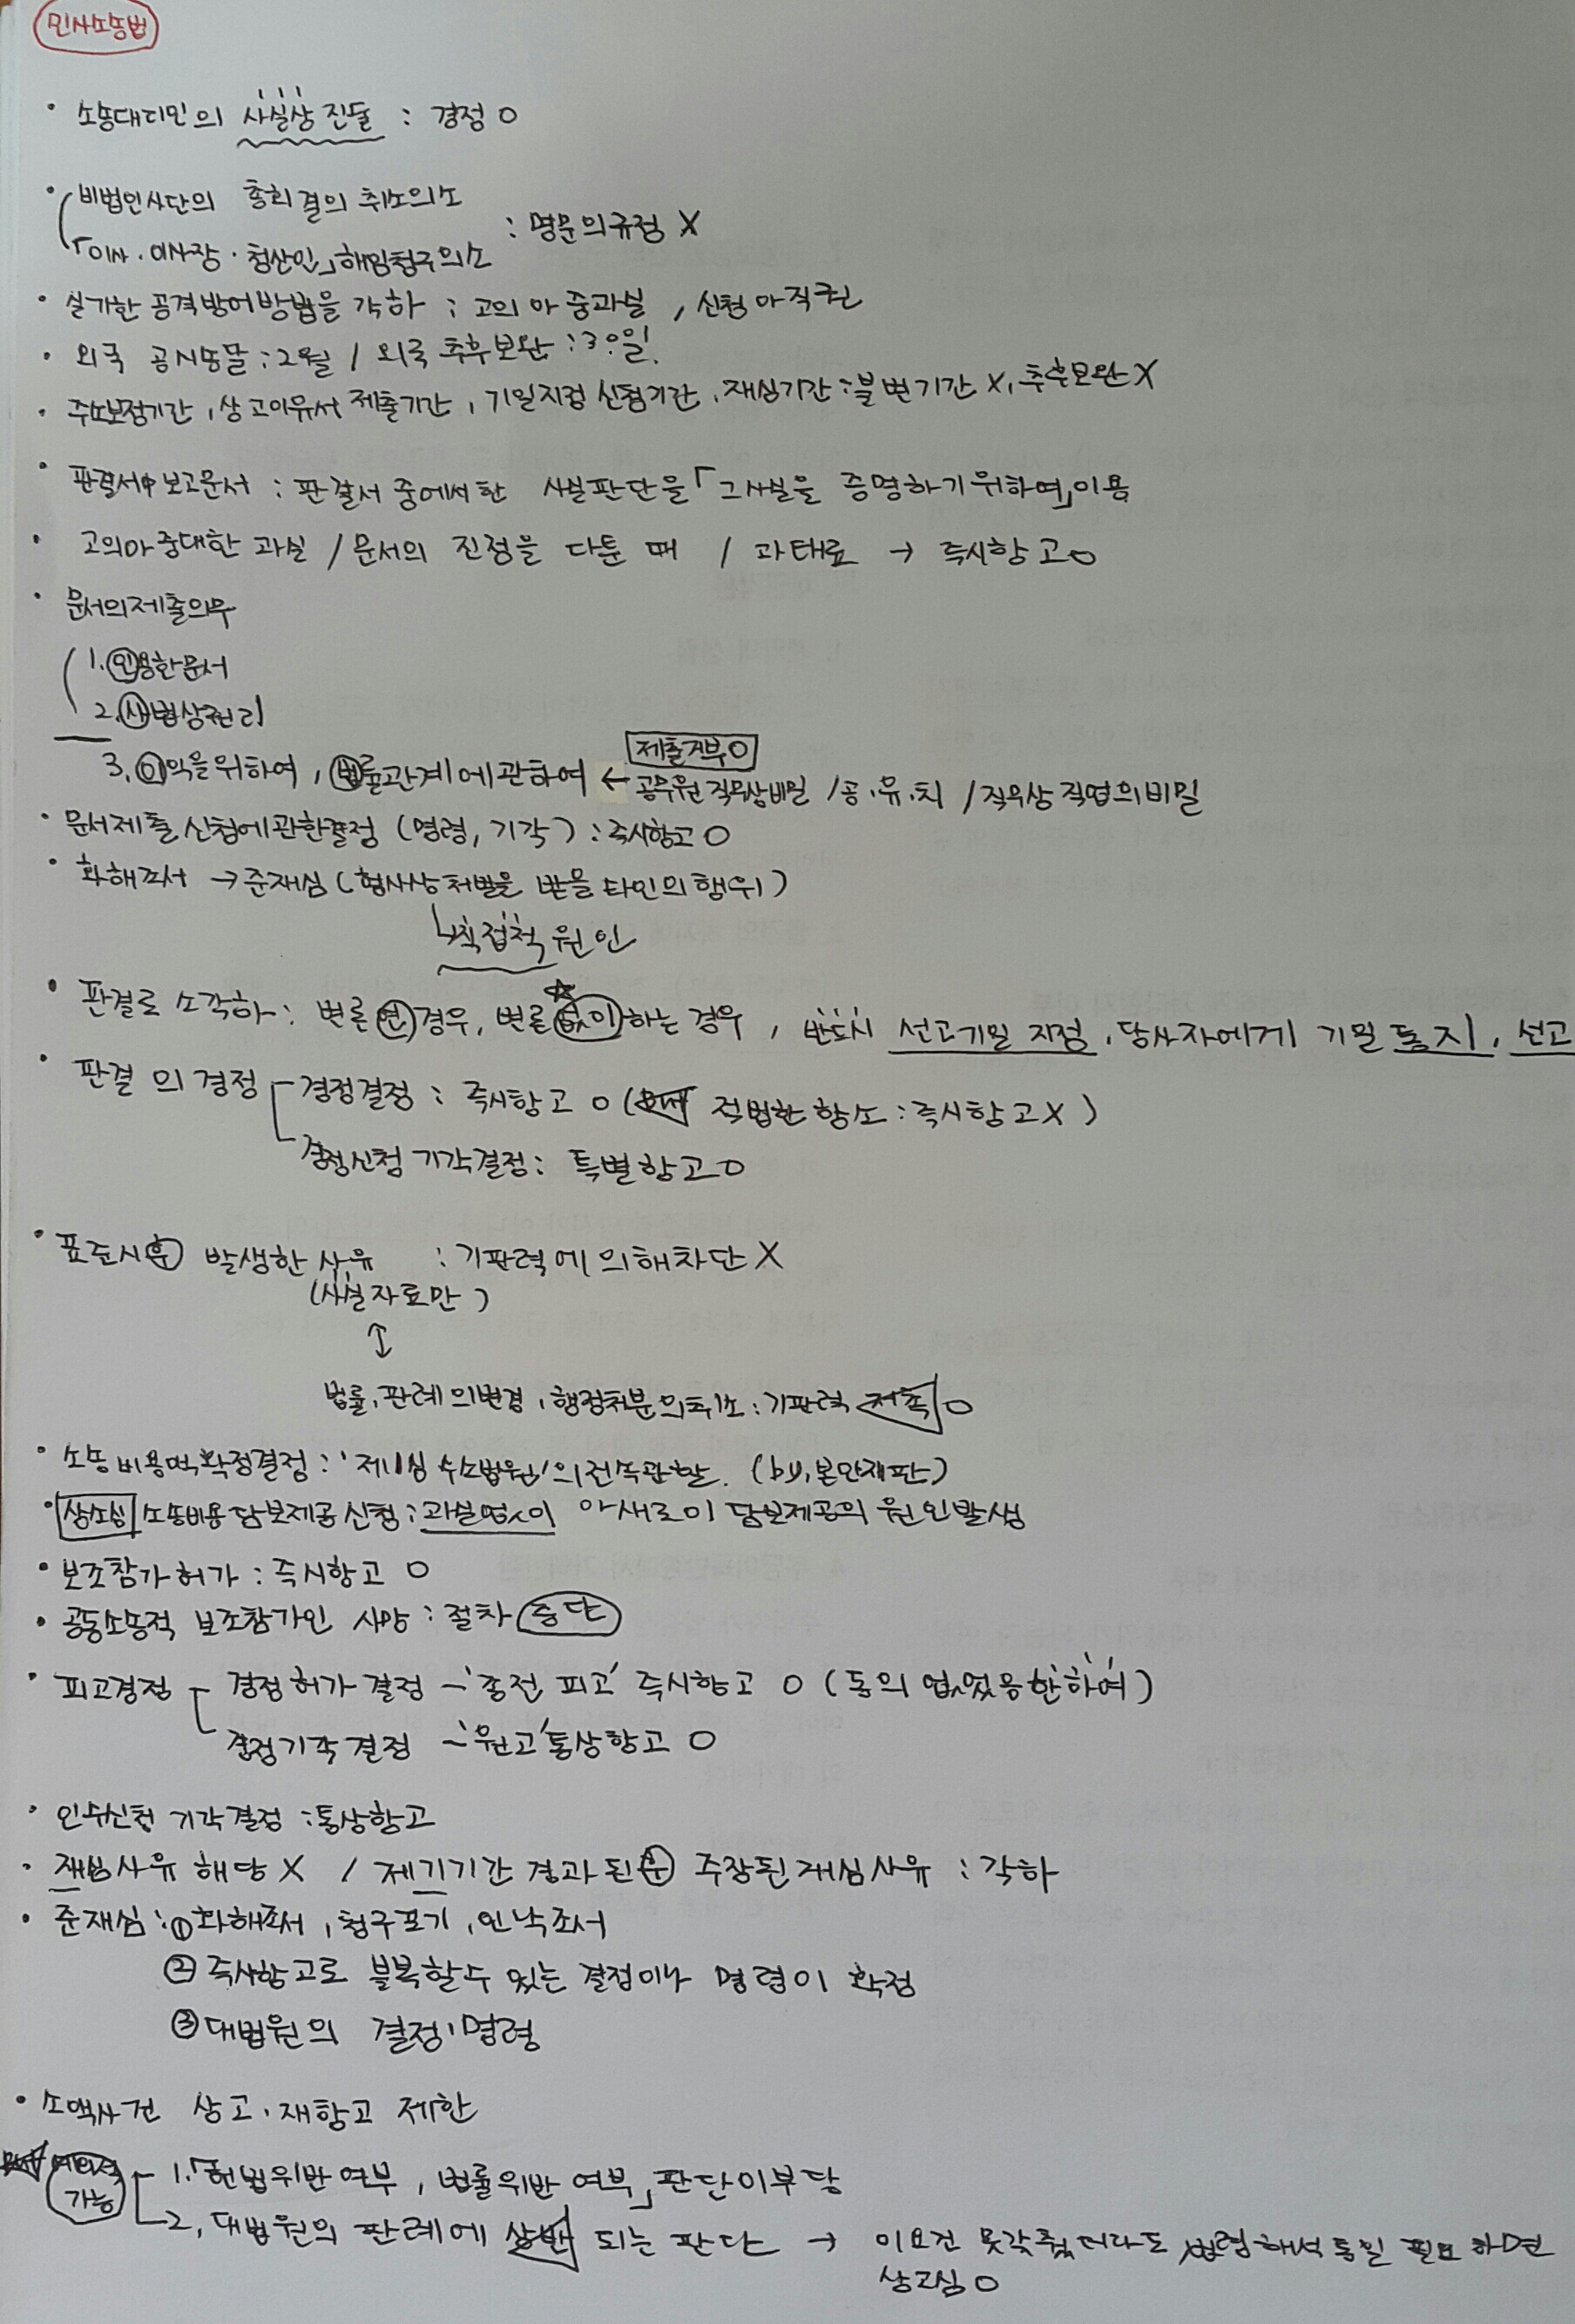 민사소송법
• 소송대리인의 사실상 진술 : 경정 O
• 비법인사단의 총회결의 취소의소
「이사·이사장·청산인」해임청구의소 : 명문의규정 X
• 실기한 공격방어방법을 각하 : 고의 or 중과실, 신청 or 직권
• 외국 공시송달 : 2월 / 외국 추후보완 : 30일.
• 주소보정기간, 상고이유서 제출기간, 기일지정 신청기간, 재심기간 : 불변기간 X, 추후보완 X
• 판결서中 보고문서 : 판결서 중에서한 사실판단을「그사실을 증명하기위하여」이용
• 고의or중대한 과실 / 문서의 진정을 다툰 때 / 과태료 → 즉시항고 O
• 문서의제출의무
1. 인용한문서
2. 사법상권리
3. 이익을위하여, 법률관계에관하여 ← 제출거부 O
공무원직무상비밀 / 공.유.치 / 직무상 직업의비밀
• 문서제출신청에관한결정 (명령, 기각) : 즉시항고 O
• 화해조서 → 준재심 (형사상처벌을 받을 타인의행위)
↳직접적 원인
• 판결로 소각하 : 변론 연 경우, 변론 ☆없이 하는 경우, 반드시 선고기일 지정, 당사자에게 기일 통지, 선고
• 판결의경정 ┌ 경정결정 : 즉시항고 O ( 적법한 항소 : 즉시항고 X )
└ 경정신청 기각결정 : 특별항고 O
• 표준시 후 발생한 사유 : 기판력에의해차단 X
(사실자료만)
↕
법률, 판례의변경, 행정처분의취소 : 기판력 저촉 O
• 소송비용액확정결정 : '제1심 수소법원'의전속관할. (by, 본안재판)
• 상소심 소송비용담보제공신청 : 과실없이 or 새로이 담보제공의 원인발생
• 보조참가허가 : 즉시항고 O
• 공동소송적 보조참가인 사망 : 절차 중단
• 피고경정 ┌ 경정허가 결정 - '종전 피고' 즉시항고 O (동의 없었음 한하여)
└ 경정기각결정 - '원고' 통상항고 O
• 인수신청 기각결정 : 통상항고
• 재심사유 해당 X / 제기기간 경과된 후 주장된 재심사유 : 각하
• 준재심 : ① 화해조서, 청구포기, 인낙조서
② 즉시항고로 불복할수 있는 결정이나 명령이 확정
③ 대법원의 결정, 명령
• 소액사건 상고·재항고 제한
예외적 가능 ┌ 1.「헌법위반여부, 법률위반여부」판단이부당
└ 2. 대법원의 판례에 상반 되는 판단 → 이요건 못갖췄더라도 법령해석통일 필요하면
상고심 O